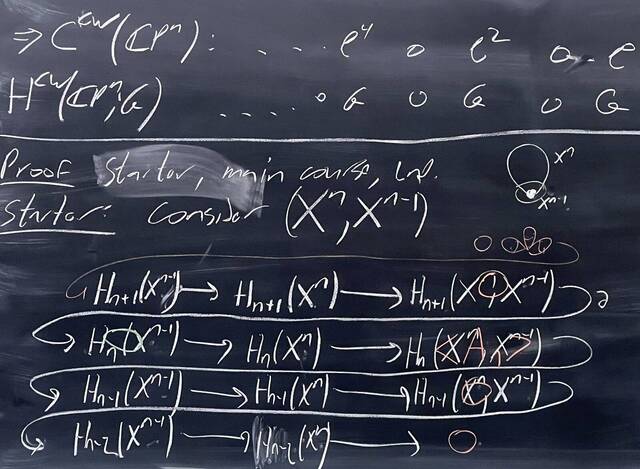 ⇒ C^CW(ℂPⁿ): . . . . e⁴ 0 e² 0 e
H^CW(ℂPⁿ; G) . . . . 0 G 0 G 0 G
Proof Starter, main course,
Xⁿ
Xⁿ⁻¹
Starter: Consider (Xⁿ, Xⁿ⁻¹)
Hₙ₊₁(Xⁿ⁻¹) → Hₙ₊₁(Xⁿ) → Hₙ₊₁(Xⁿ, Xⁿ⁻¹) ∂
Hₙ(Xⁿ⁻¹) → Hₙ(Xⁿ) → Hₙ(Xⁿ, Xⁿ⁻¹)
Hₙ₋₁(Xⁿ⁻¹) → Hₙ₋₁(Xⁿ) → Hₙ₋₁(Xⁿ, Xⁿ⁻¹)
Hₙ₋₂(Xⁿ⁻¹) → Hₙ₋₂(Xⁿ) → 0